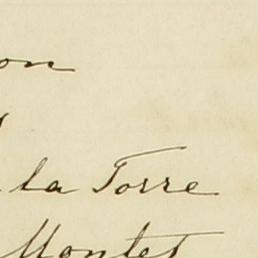 on
la Torre
Montet